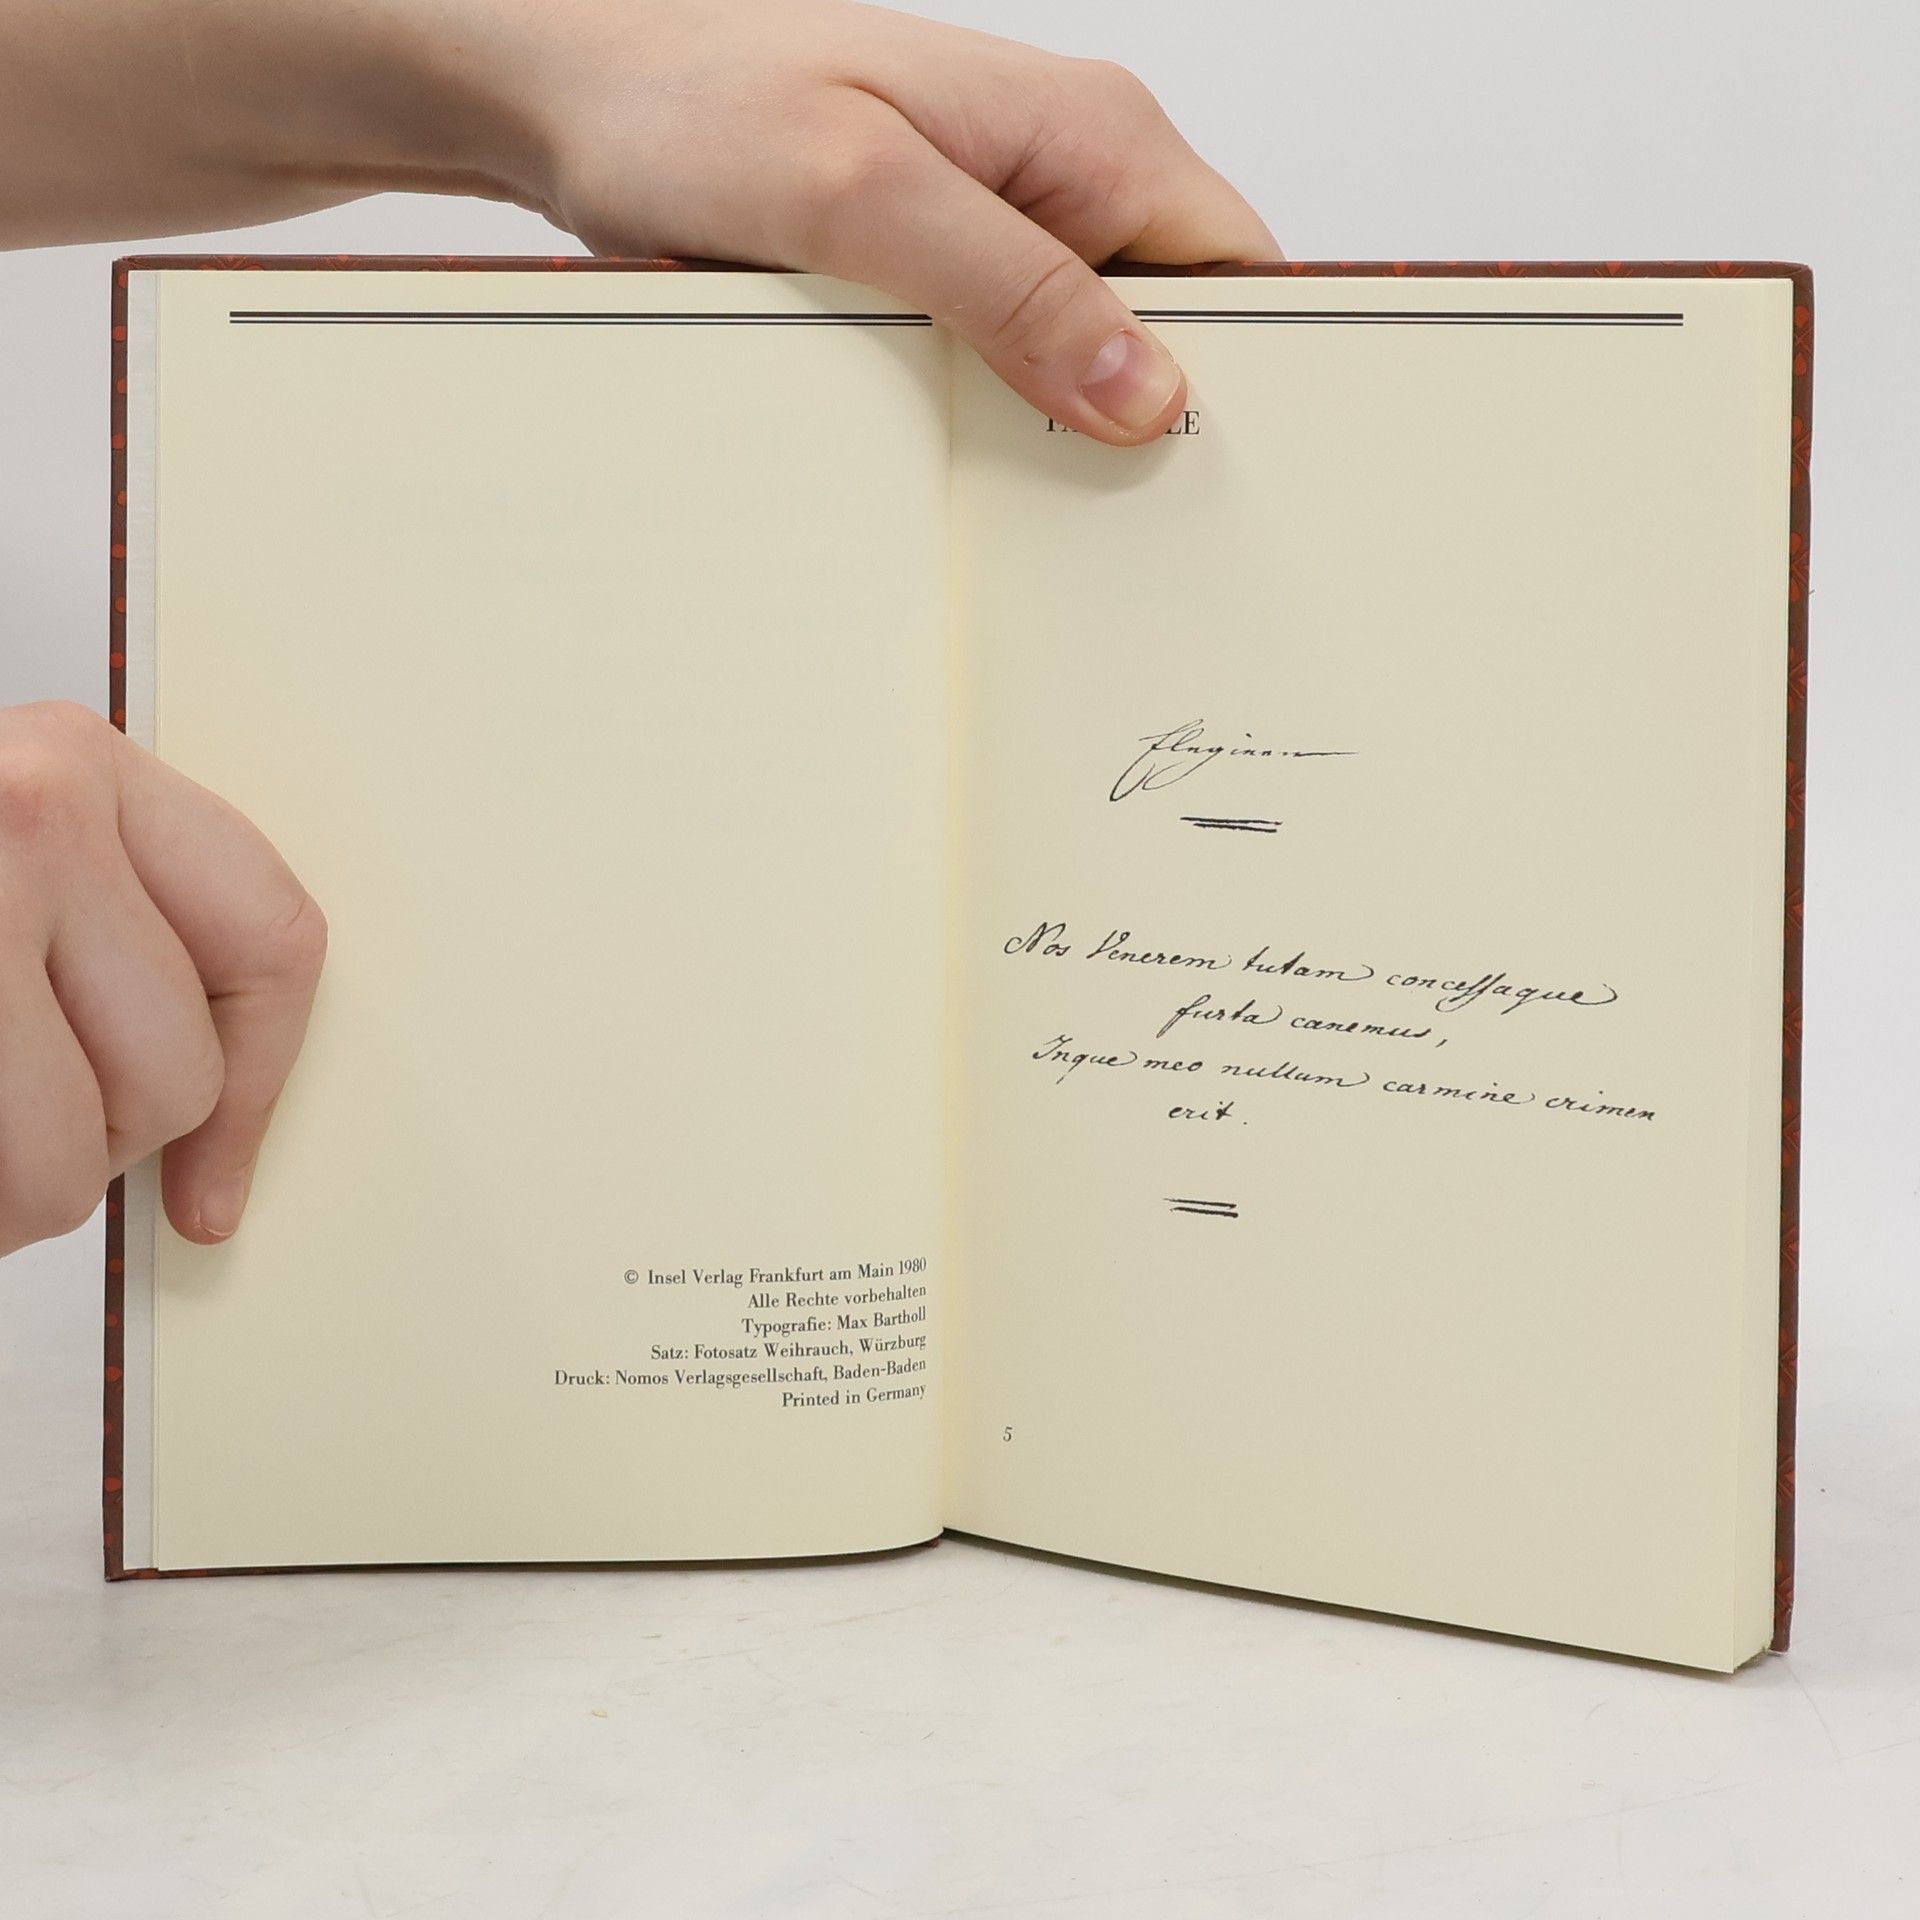 © Insel Verlag Frankfurt am Main 1980
Alle Rechte vorbehalten
Typografie: Max Bartholl
Satz: Fotosatz Weihrauch, Würzburg
Druck: Nomos Verlagsgesellschaft, Baden-Baden
Printed in Germany
Elegieen
Nos Venerem tutam conceſſaque
furta canemus,
Inque meo nullum carmine crimen
erit.
5